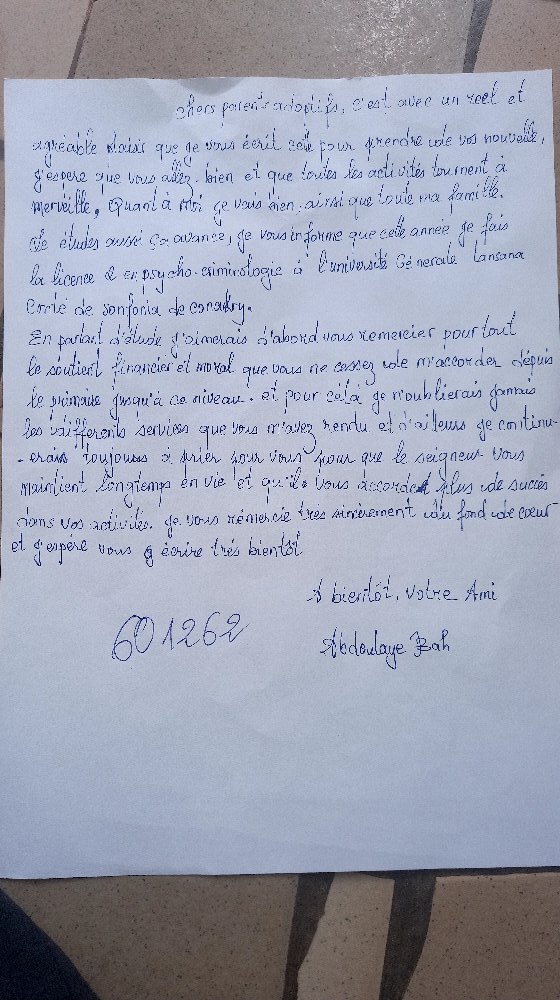 chers parents adoptifs, c'est avec un reel et
agréable plaisir que je vous écrit cette pour prendre de vos nouvelle,
j'espère que vous allez bien et que toutes les activités tournent à
merveille. Quant à moi je vais bien, ainsi que toute ma famille.
de études aussi ça avance, je vous informe que cette année je fais
la licence 2 en psycho-criminologie à l'université Générale lansana
Conté de sonfonia de conakry.
En parlant d'étude j'aimerais d'abord vous remercier pour tout
le soutient financier et moral que vous ne cessez de m'accorder dépuis
le primaire jusqu'à ce niveau. et pour célà je n'oublierais jamais
les differents services que vous m'avez rendu et d'ailleurs je continu-
-erais toujours à prier pour vous pour que le seigneur vous
maintient longtemps en vie et qu'il vous accorde plus de succès
dans vos activités. je vous rémercie très sincèrement du fond de coeur
et j'espère vous écrire très bientôt
A bientôt, votre Ami
601262
Abdoulaye Bah